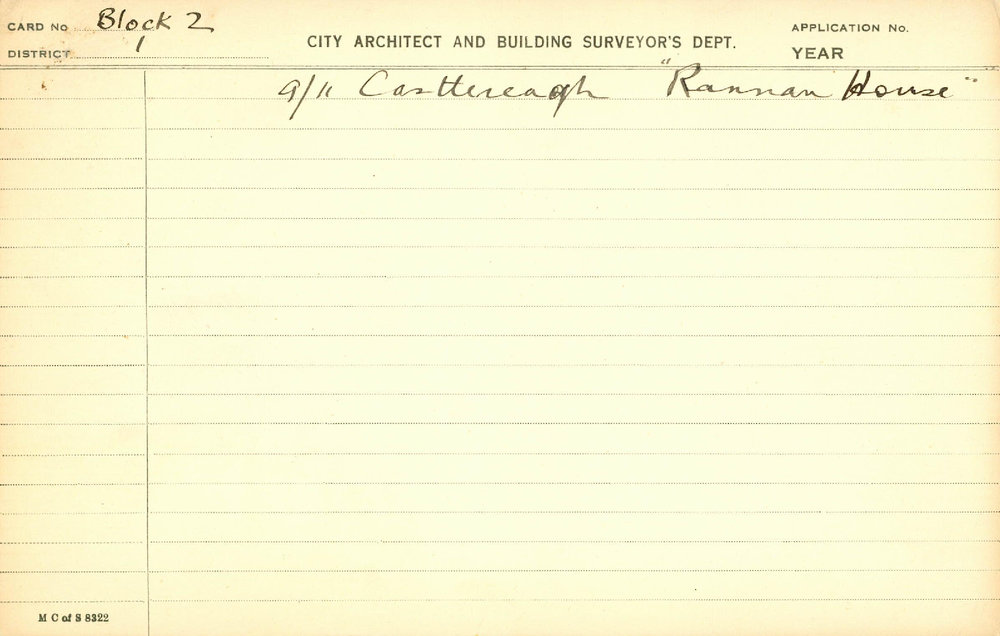 CARD No Block 2
DISTRICT 1
CITY ARCHITECT AND BUILDING SURVEYOR'S DEPT.
APPLICATION No.
YEAR
9/11 Castlereagh "Rannan House"
M C of S 8322